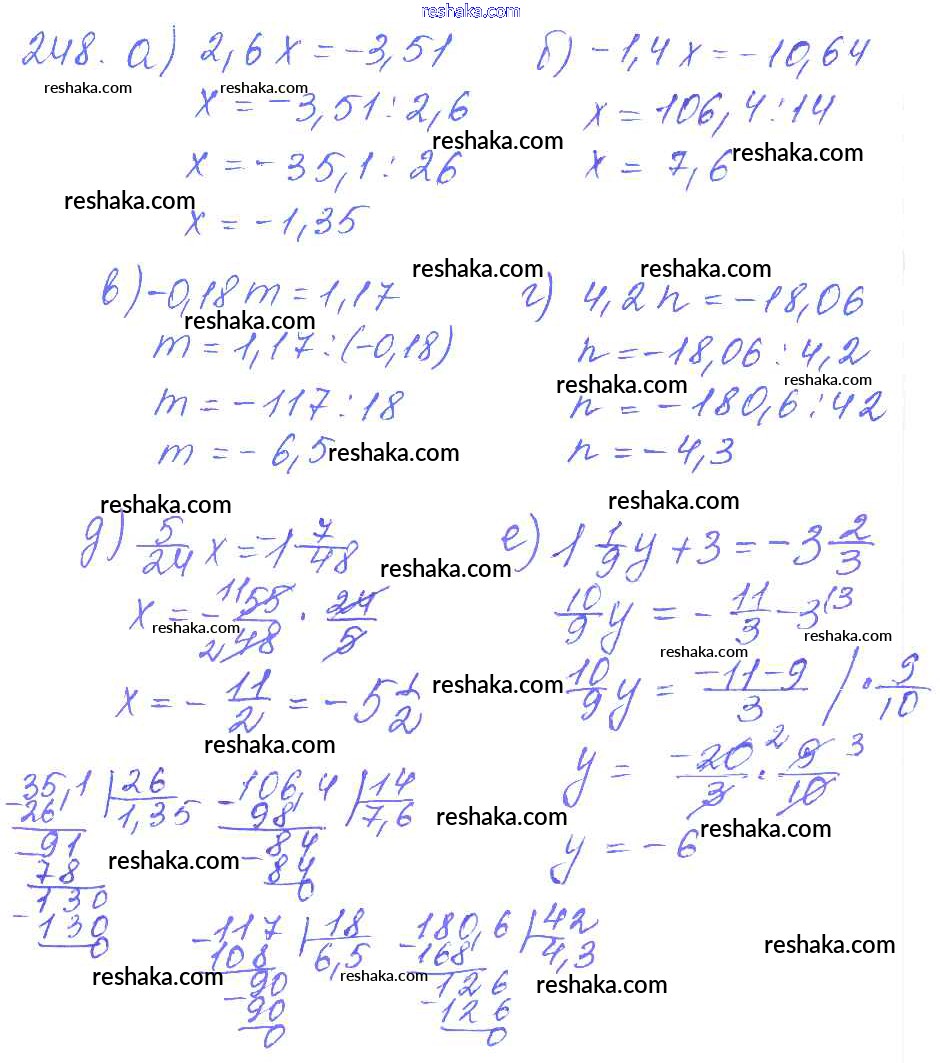 reshaka.com
248. а) 2,6 x = -3,51
reshaka.com reshaka.com
x = -3,51 : 2,6
reshaka.com
x = -35,1 : 26
reshaka.com
x = -1,35
б) -1,4 x = -10,64
x = 106,4 : 14
x = 7,6
reshaka.com
reshaka.com
в) -0,18 m = 1,17
reshaka.com
m = 1,17 : (-0,18)
m = -117 : 18
m = -6,5
reshaka.com
reshaka.com
г) 4,2 n = -18,06
n = -18,06 : 4,2
reshaka.com reshaka.com
n = -180,6 : 42
n = -4,3
reshaka.com
д) 5/24 x = -1 7/48
reshaka.com
x = - 11 55/2 48 · 24/5
reshaka.com
x = - 11/2 = -5 1/2
reshaka.com
reshaka.com
reshaka.com
е) 1 1/9 y + 3 = -3 2/3
10/9 y = - 11/3 - 3 (3
reshaka.com reshaka.com
10/9 y = -11-9/3 | · 9/10
y = -20 2/3 · 9 3/10
reshaka.com
y = -6
-35,1 | 26
26 | 1,35
-91
78
-130
130
0
reshaka.com
reshaka.com
-106,4 | 14
98 | 7,6
-84
84
0
reshaka.com
-117 | 18
108 | 6,5
-90
90
0
reshaka.com
-180,6 | 42
168 | 4,3
-126
126
0
reshaka.com
reshaka.com